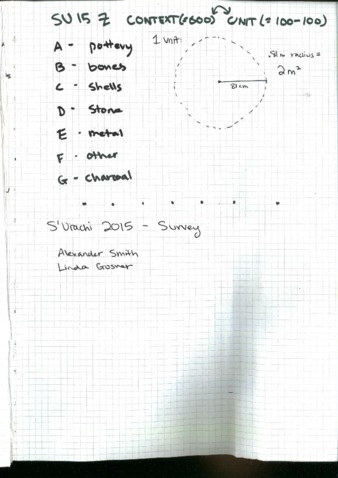 SU 15 Z CONTEXT(=600) UNIT (=100-100)
A - pottery
B - bones
C - shells
D - Stone
E - metal
F - other
G - charcoal
1 unit:
.81m radius =
2m²
81cm
S'Urachi 2015 - Survey
Alexander Smith
Linda Gosner